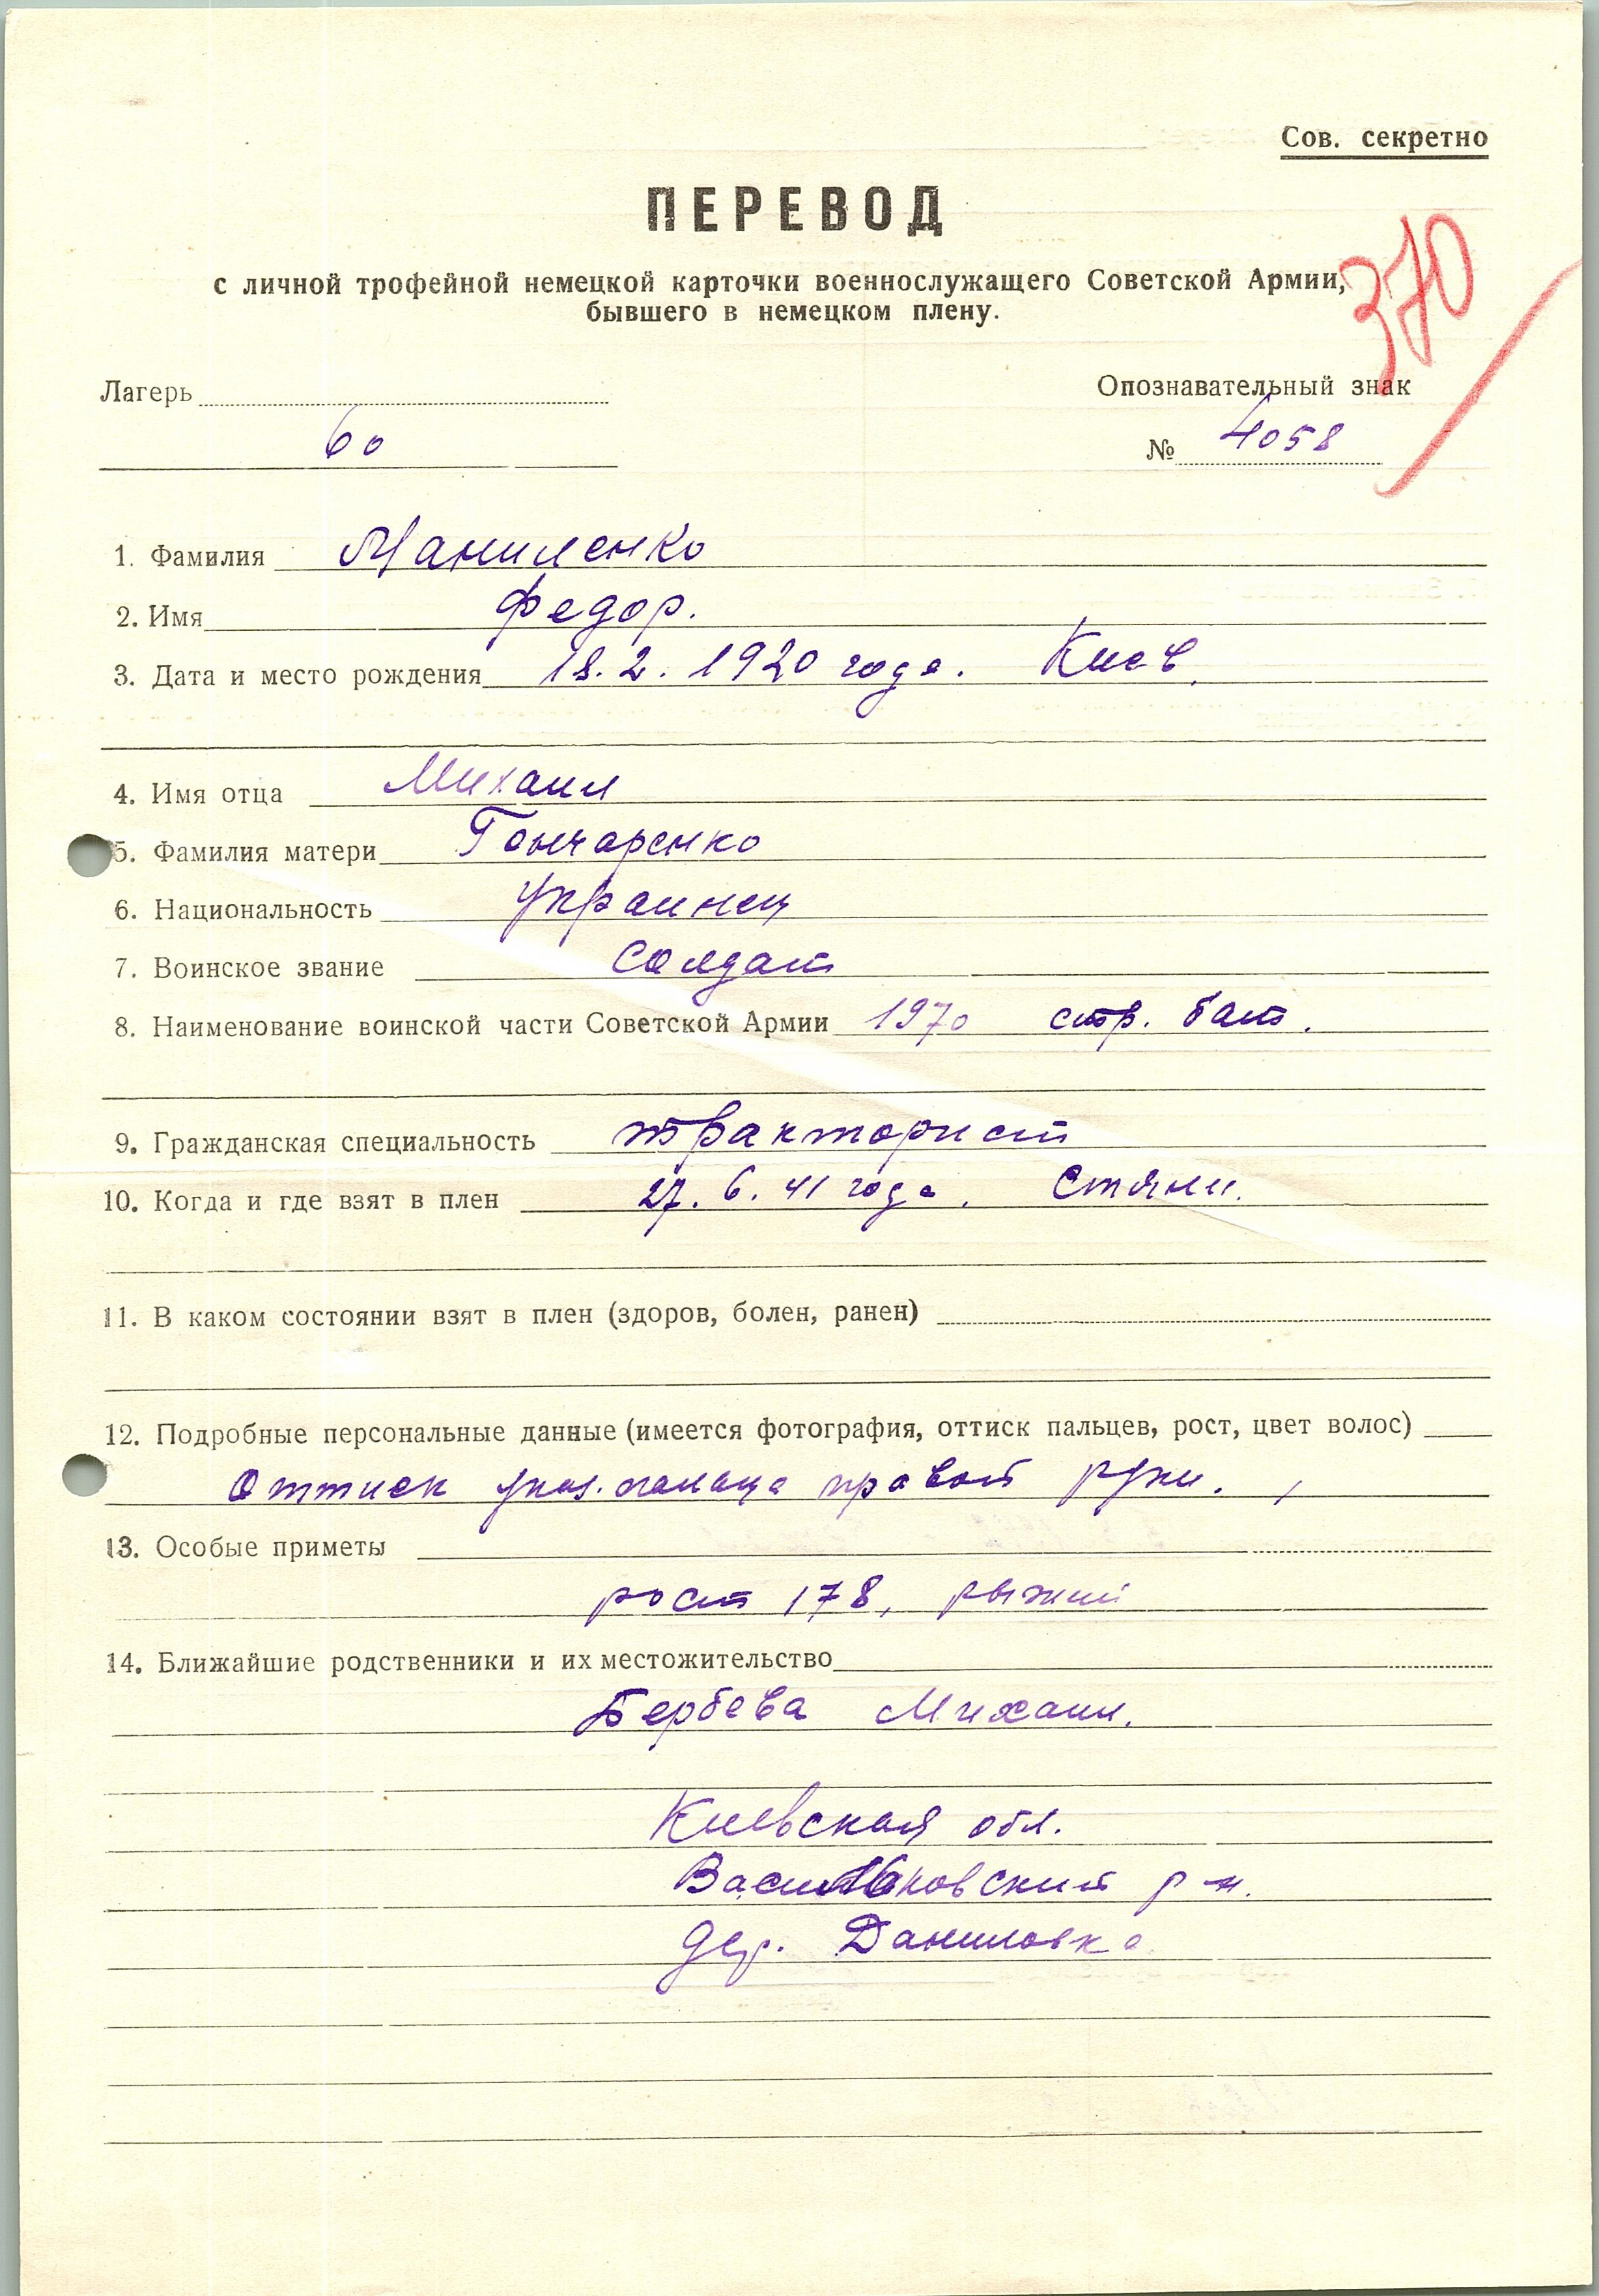 Сов. секретно
ПЕРЕВОД
с личной трофейной немецкой карточки военнослужащего Советской Армии,
бывшего в немецком плену.
370
Лагерь
Опознавательный знак
60
№ 4058
1. Фамилия Маниленко
2. Имя Федор.
3. Дата и место рождения 18.2.1920 года. Киев.
4. Имя отца Михаил
5. Фамилия матери Гончаренко
6. Национальность Украинец
7. Воинское звание Солдат
8. Наименование воинской части Советской Армии 1970 стр. бат.
9. Гражданская специальность тракторист
10. Когда и где взят в плен 27.6.41 года. Стяни.
11. В каком состоянии взят в плен (здоров, болен, ранен)
12. Подробные персональные данные (имеется фотография, оттиск пальцев, рост, цвет волос)
Оттиск указ. пальца правой руки.
13. Особые приметы
рост 178, рыжий
14. Ближайшие родственники и их местожительство
Бербева Михаил.
Киевская обл.
р-н.
дер. Даниловка